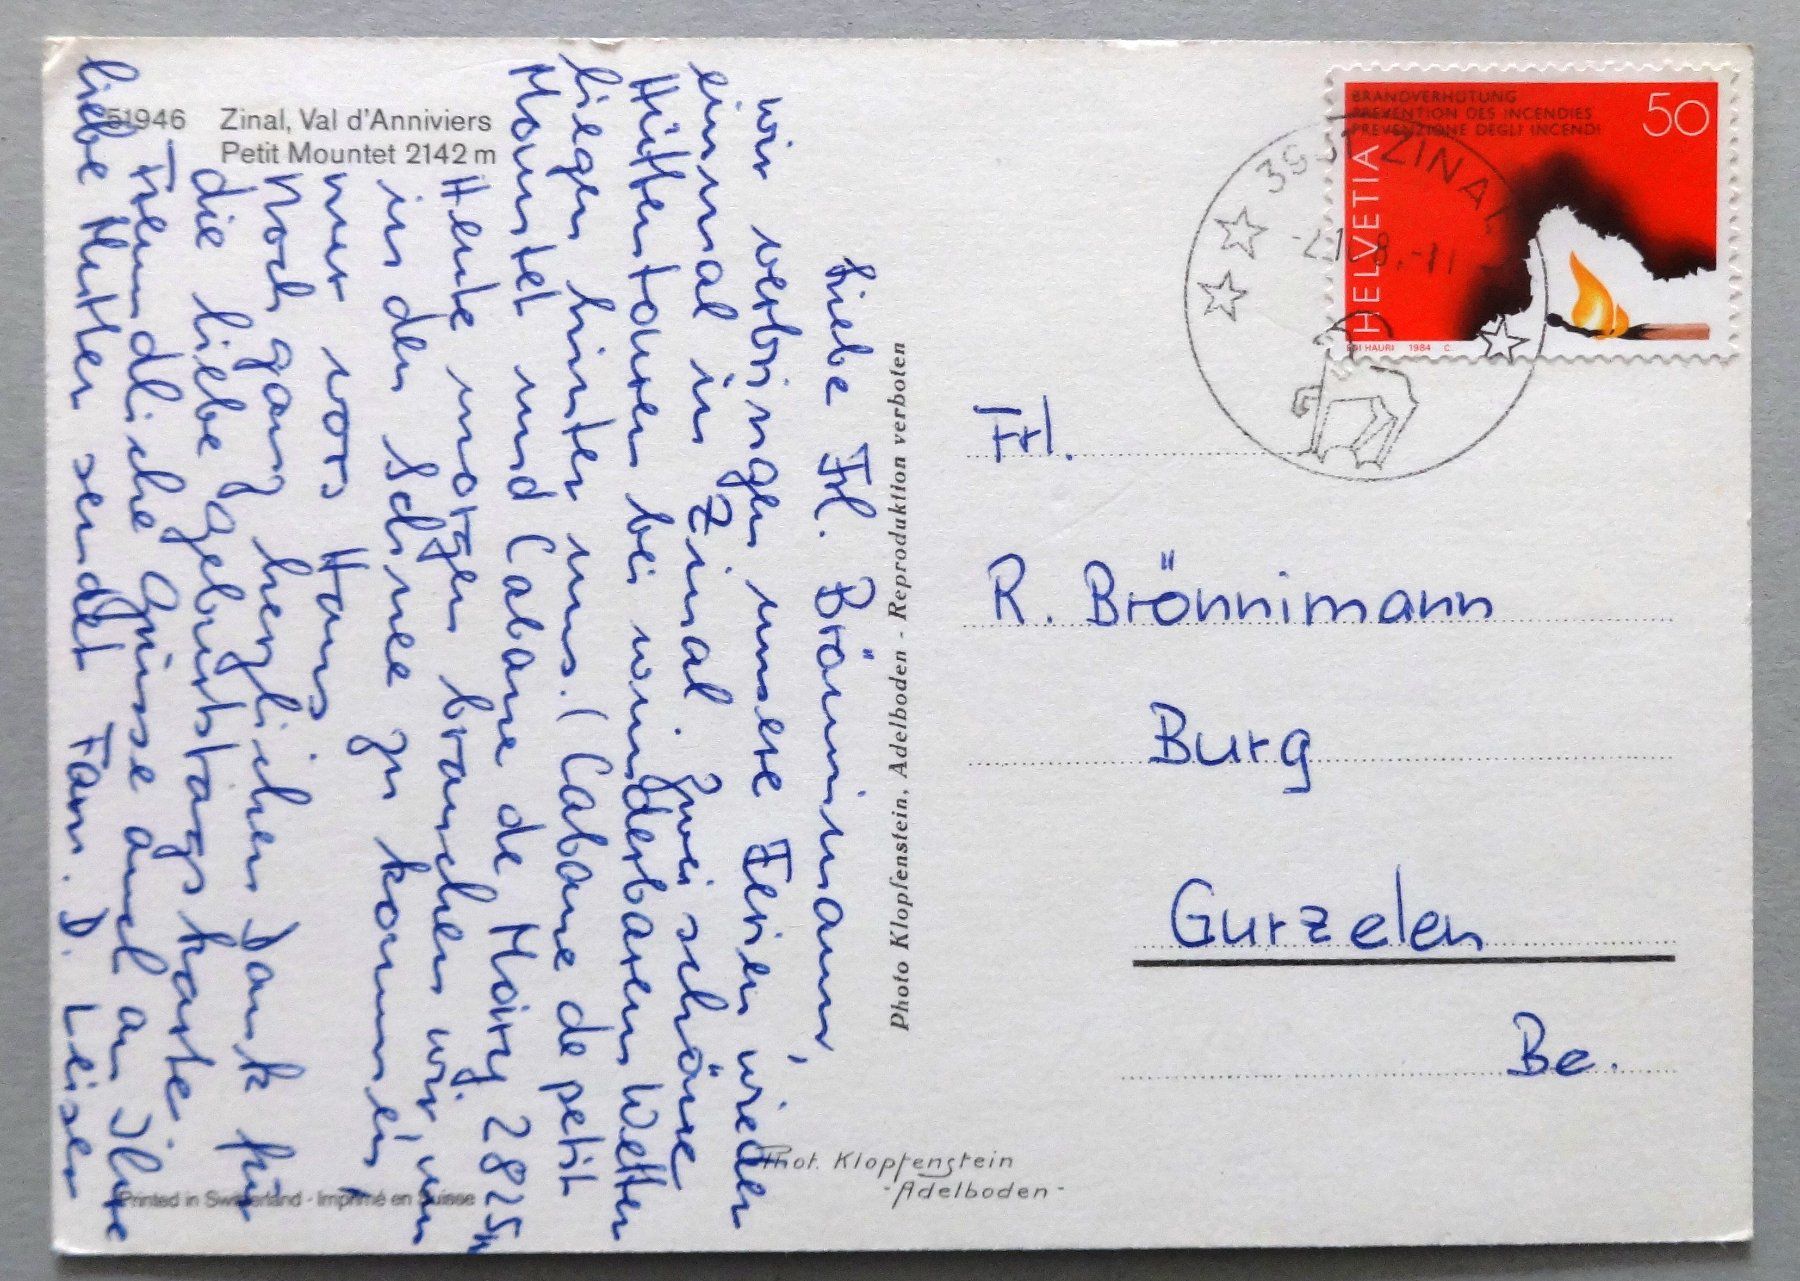 51946 Zinal, Val d'Anniviers
Petit Mountet 2142 m
Liebe Frl. Brönnimann,
wir verbringen unsere Ferien wieder
einmal in Zinal. Zwei schöne
Hüttentouren bei wunderbarem Wetter
liegen hinter uns. (Cabane de petit
Mountet und Cabane de Moiry 2825m
Heute morgen brauchen wir, um
in den Schnee zu kommen,
nur vors Haus
Noch ganz herzlichen Dank für
die liebe Geburtstagskarte.
Freundliche Grüsse auch an Ihre
liebe Mutter sendet Fam. D. Leiser
Photo Klopfenstein, Adelboden - Reproduktion verboten
Phot. Klopfenstein
- Adelboden -
Printed in Switzerland - Imprimé en Suisse
BRANDVERHÜTUNG
PREVENTION DES INCENDIES
PREVENZIONE DEGLI INCENDI
50
HELVETIA
HAURI 1984 C.
ZINAL
Frl.
R. Brönnimann
Burg
Gurzelen
Be.